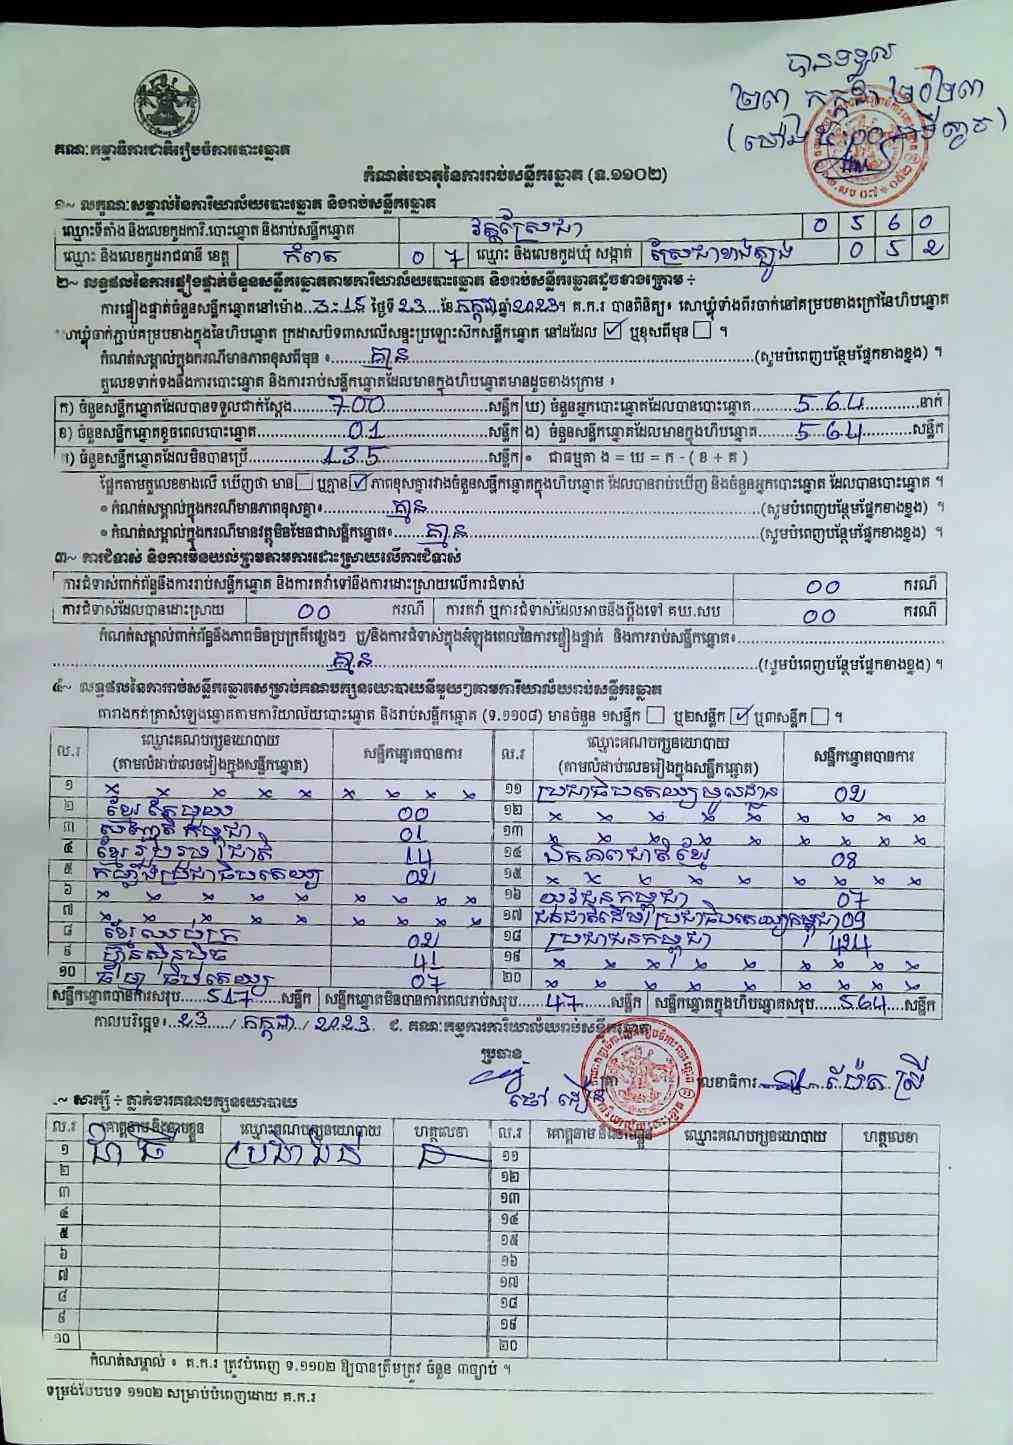 បានទទួល
២៣ កក្កដា ២០២៣
(ម៉ោង ៥:០០
គណៈកម្មាធិការជាតិរៀបចំការបោះឆ្នោត
កំណត់ហេតុនៃការរាប់សន្លឹកឆ្នោត (ទ.១១០២)
១~ លក្ខណៈសម្គាល់នៃការិយាល័យបោះឆ្នោត និងរាប់សន្លឹកឆ្នោត
ឈ្មោះទីតាំង និងលេខកូដការិ.បោះឆ្នោត និងរាប់សន្លឹកឆ្នោត វត្តស្រែជា 0 5 6 0
ឈ្មោះ និងលេខកូដរាជធានី ខេត្ត កំពត 0 7 ឈ្មោះ និងលេខកូដឃុំ សង្កាត់ ស្រែជាខាងត្បូង 0 5 2
២~ លទ្ធផលនៃការផ្ទៀងផ្ទាត់ចំនួនសន្លឹកឆ្នោតតាមការិយាល័យបោះឆ្នោត និងរាប់សន្លឹកឆ្នោតដូចខាងក្រោម ÷
ការផ្ទៀងផ្ទាត់ចំនួនសន្លឹកឆ្នោតនៅម៉ោង 3:15 ថ្ងៃទី 23 ខែ កក្កដា ឆ្នាំ 2023។ គ.ក.រ បានពិនិត្យ៖ សោឃ្លុំទាំងពីរចាក់នៅគម្របខាងក្រៅនៃហិបឆ្នោត
សោឃ្លុំចាក់ភ្ជាប់គម្របខាងក្នុងនៃហិបឆ្នោត ក្រដាសបិទពាសលើសន្ទះប្រឡោះស៊កសន្លឹកឆ្នោត នៅដដែល ☑ ឬខុសពីមុន ☐ ។
កំណត់សម្គាល់ក្នុងករណីមានភាពខុសពីមុន ៖ គ្មាន (សូមបំពេញបន្ថែមផ្នែកខាងខ្នង) ។
តួលេខទាក់ទងនឹងការបោះឆ្នោត និងការរាប់សន្លឹកឆ្នោតដែលមានក្នុងហិបឆ្នោតមានដូចខាងក្រោម ៖
ក) ចំនួនសន្លឹកឆ្នោតដែលបានទទួលជាក់ស្តែង 700 សន្លឹក ឃ) ចំនួនអ្នកបោះឆ្នោតដែលបានបោះឆ្នោត 564 នាក់
ខ) ចំនួនសន្លឹកឆ្នោតខូចពេលបោះឆ្នោត 01 សន្លឹក ង) ចំនួនសន្លឹកឆ្នោតដែលមានក្នុងហិបឆ្នោត 564 សន្លឹក
គ) ចំនួនសន្លឹកឆ្នោតដែលមិនបានប្រើ 135 សន្លឹក ● ជាធម្មតា ង = ឃ = ក - ( ខ + គ )
ផ្អែកតាមតួលេខខាងលើ ឃើញថា មាន ☐ ឬគ្មាន ☑ ភាពខុសគ្នារវាងចំនួនសន្លឹកឆ្នោតក្នុងហិបឆ្នោត ដែលបានរាប់ឃើញ និងចំនួនអ្នកបោះឆ្នោត ដែលបានបោះឆ្នោត ។
● កំណត់សម្គាល់ក្នុងករណីមានភាពខុសគ្នា៖ គ្មាន (សូមបំពេញបន្ថែមផ្នែកខាងខ្នង) ។
● កំណត់សម្គាល់ក្នុងករណីមានវត្ថុមិនមែនជាសន្លឹកឆ្នោត៖ គ្មាន (សូមបំពេញបន្ថែមផ្នែកខាងខ្នង) ។
៣~ ការជំទាស់ និងការមិនយល់ព្រមតាមការដោះស្រាយលើការជំទាស់
ការជំទាស់ពាក់ព័ន្ធនឹងការរាប់សន្លឹកឆ្នោត និងការតវ៉ាទៅនឹងការដោះស្រាយលើការជំទាស់ 00 ករណី
ការជំទាស់ដែលបានដោះស្រាយ 00 ករណី ការតវ៉ា ឬការជំទាស់ដែលអាចនឹងប្តឹងទៅ គឃ.សប 00 ករណី
កំណត់សម្គាល់ពាក់ព័ន្ធនឹងភាពមិនប្រក្រតីផ្សេងៗ ឬ/និងការជំទាស់ក្នុងអំឡុងពេលនៃការផ្ទៀងផ្ទាត់ និងការរាប់សន្លឹកឆ្នោត៖
គ្មាន (សូមបំពេញបន្ថែមផ្នែកខាងខ្នង) ។
៤~ លទ្ធផលនៃការរាប់សន្លឹកឆ្នោតសម្រាប់គណបក្សនយោបាយនីមួយៗតាមការិយាល័យរាប់សន្លឹកឆ្នោត
តារាងកត់ត្រាសំឡេងឆ្នោតតាមការិយាល័យបោះឆ្នោត និងរាប់សន្លឹកឆ្នោត (ទ.១១០៨) មានចំនួន ១សន្លឹក ☐ ឬ២សន្លឹក ☑ ឬ៣សន្លឹក ☐ ។
ល.រ ឈ្មោះគណបក្សនយោបាយ សន្លឹកឆ្នោតបានការ ល.រ ឈ្មោះគណបក្សនយោបាយ សន្លឹកឆ្នោតបានការ
(តាមលំដាប់លេខរៀងក្នុងសន្លឹកឆ្នោត) (តាមលំដាប់លេខរៀងក្នុងសន្លឹកឆ្នោត)
១ x x x x x x x x x ១១ ប្រជាធិបតេយ្យមូលដ្ឋាន 02
២ ខ្មែរតែមួយ 00 ១២ x x x x x x x x x
៣ សញ្ជាតិកម្ពុជា 01 ១៣ x x x x x x x x x
៤ ខ្មែររួបរួមជាតិ 14 ១៤ ឯកភាពជាតិខ្មែរ 08
៥ កម្លាំងប្រជាធិបតេយ្យ 02 ១៥ x x x x x x x x
៦ x x x x x x x x x ១៦ យុវជនកម្ពុជា 07
៧ x x x x x x x x x ១៧ ជនជាតិដើមប្រជាធិបតេយ្យកម្ពុជា 09
៨ ខ្មែរឈប់ក្រ 02 ១៨ ប្រជាជនកម្ពុជា 424
៩ ហ្វ៊ុនស៊ិនប៉ិច 41 ១៩ x x x x x x x x
១០ ធម្មាធិបតេយ្យ 07 ២០ x x x x x x x x
សន្លឹកឆ្នោតបានការសរុប 517 សន្លឹក សន្លឹកឆ្នោតមិនបានការពេលរាប់សរុប 47 សន្លឹក សន្លឹកឆ្នោតក្នុងហិបឆ្នោតសរុប 564 សន្លឹក
កាលបរិច្ឆេទ៖ 23 / កក្កដា / 2023 ៥. គណៈកម្មការការិយាល័យរាប់សន្លឹកឆ្នោត
ប្រធាន
ត្រា លេខាធិការ
៦~ សាក្សី ÷ ភ្នាក់ងារគណបក្សនយោបាយ
ល.រ គោត្តនាម និងនាមខ្លួន ឈ្មោះគណបក្សនយោបាយ ហត្ថលេខា ល.រ គោត្តនាម និងនាមខ្លួន ឈ្មោះគណបក្សនយោបាយ ហត្ថលេខា
១ ប្រជាជន ១១
២ ១២
៣ ១៣
៤ ១៤
៥ ១៥
៦ ១៦
៧ ១៧
៨ ១៨
៩ ១៩
១០ ២០
កំណត់សម្គាល់ ៖ គ.ក.រ ត្រូវបំពេញ ទ.១១០២ ឱ្យបានត្រឹមត្រូវ ចំនួន ៣ច្បាប់ ។
ទម្រង់បែបបទ ១១០២ សម្រាប់បំពេញដោយ គ.ក.រ